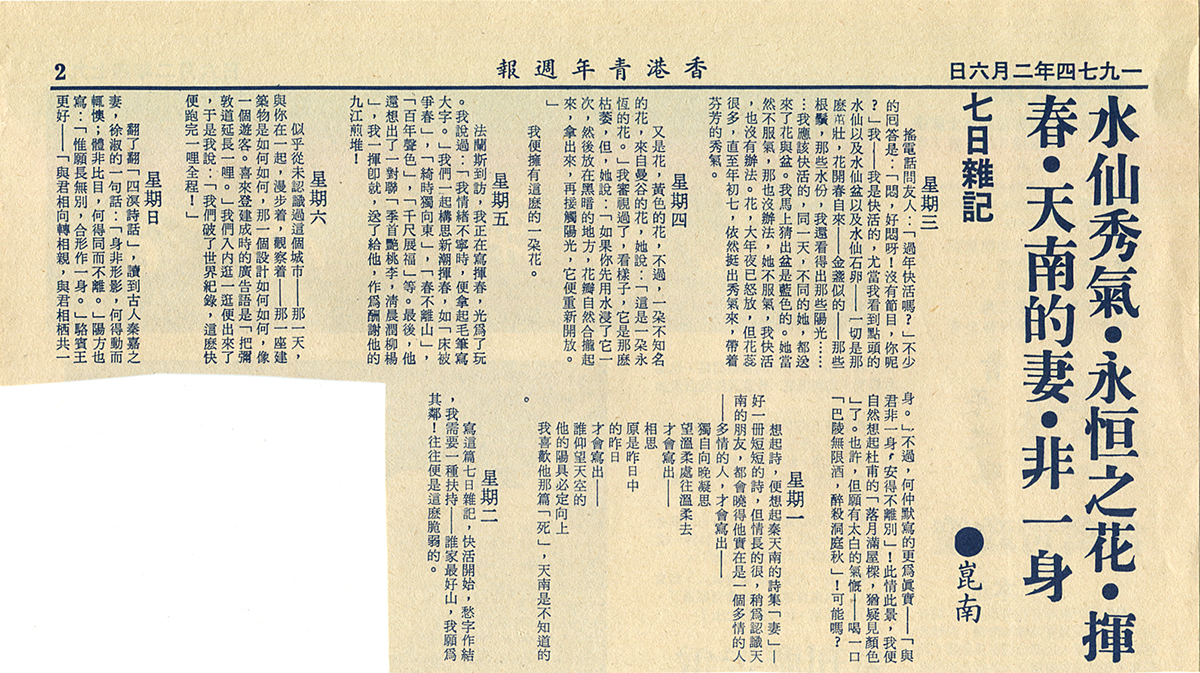 一九七四年二月六日
香港青年週報
2
水仙秀氣•永恒之花•揮
春•天南的妻•非一身
●崑南
七日雜記
星期三
搖電話問友人：「過年快活嗎？」不少
的回答是：「悶，好悶呀！沒有節目，你呢
？」我——我是快活的，尤當我看到點頭的
水仙以及水仙盆以及水仙石卵——一切是那
麽茁壯，花開春自來——金盞似的——那些
根鬚，那些水份，我還看得出那些陽光……
…我應該快活的，同一天，不同的她，都送
來了花與盆。我馬上猜出盆是藍色的。她當
然不服氣，那也沒辦法，她不服氣，我快活
，也沒有辦法。花，大年夜已怒放，但花蕊
很多，直至年初七，依然挺出秀氣來，帶着
芬芳的秀氣。
星期四
又是花，黃色的花，不過，一朵不知名
的花，來自曼谷的花，她說：「這是一朵永
恆的花。」我審視過了，看樣子，它是那麽
枯萎，但，她說：「如果你先用水浸了它一
次，然後放在黑暗的地方，花瓣自然合攏起
來，拿出來，再接觸陽光，它便重新開放。
」
我便擁有這麽的一朵花。
星期五
法蘭斯到訪，我正在寫揮春，光爲了玩
。我說過：「我情緒不寧時，便拿起毛筆寫
大字。」我們一起構思新潮揮春，如「床被
爭春」，「綺時獨向東」，「春不離山」，
「百年聲色」，「千尺展福」等。最後，他
還想出了一對聯「季首艷桃李，清晨潤柳楊
」，我一揮卽就，送了給他，作爲酬謝他的
九江煎堆！
星期六
似乎從未認識過這個城市——那一天，
與你在一起，漫步着，觀察着——那一座建
築物是如何如何，那一個設計如何如何，像
一個遊客。喜來登建成時的廣告語是「把彌
敦道延長一哩。」我們入內逛一逛便出來了
，于是我說：「我們破了世界紀錄，這麽快
便跑完一哩全程！」
星期日
翻了翻「四溟詩話」，讀到古人秦嘉之
妻，徐淑的一句話：「身非形影，何得動而
輒懊；體非比目，何得同而不離。」陽方也
寫：「惟願長無別，合形作一身。」駱賓王
更好——「與君相向轉相親，與君相栖共一
身。」不過，何仲默寫的更爲眞實——「與
君非一身，安得不離別」！此情此景，我便
自然想起杜甫的「落月滿屋樑，猶疑見顏色
」了。也許，但願有太白的氣慨——喝一口
「巴陵無限酒，醉殺洞庭秋」！可能嗎？
星期一
想起詩，便想起秦天南的詩集「妻」—
好一冊短短的詩，但情長的很，稍爲認識天
南的朋友，都會曉得他實在是一個多情的人
——多情的人，才會寫出——
獨自向晚凝思
望溫柔處往溫柔去
才會寫出——
相思
原是昨日中
的昨日
才會寫出——
誰仰望天空的
他的陽具必定向上
我喜歡他那篇「死」，天南是不知道的
。
星期二
寫這篇七日雜記，快活開始，愁字作結
，我需要一種扶持——誰家最好山，我願爲
其鄰！往往便是這麽脆弱的。